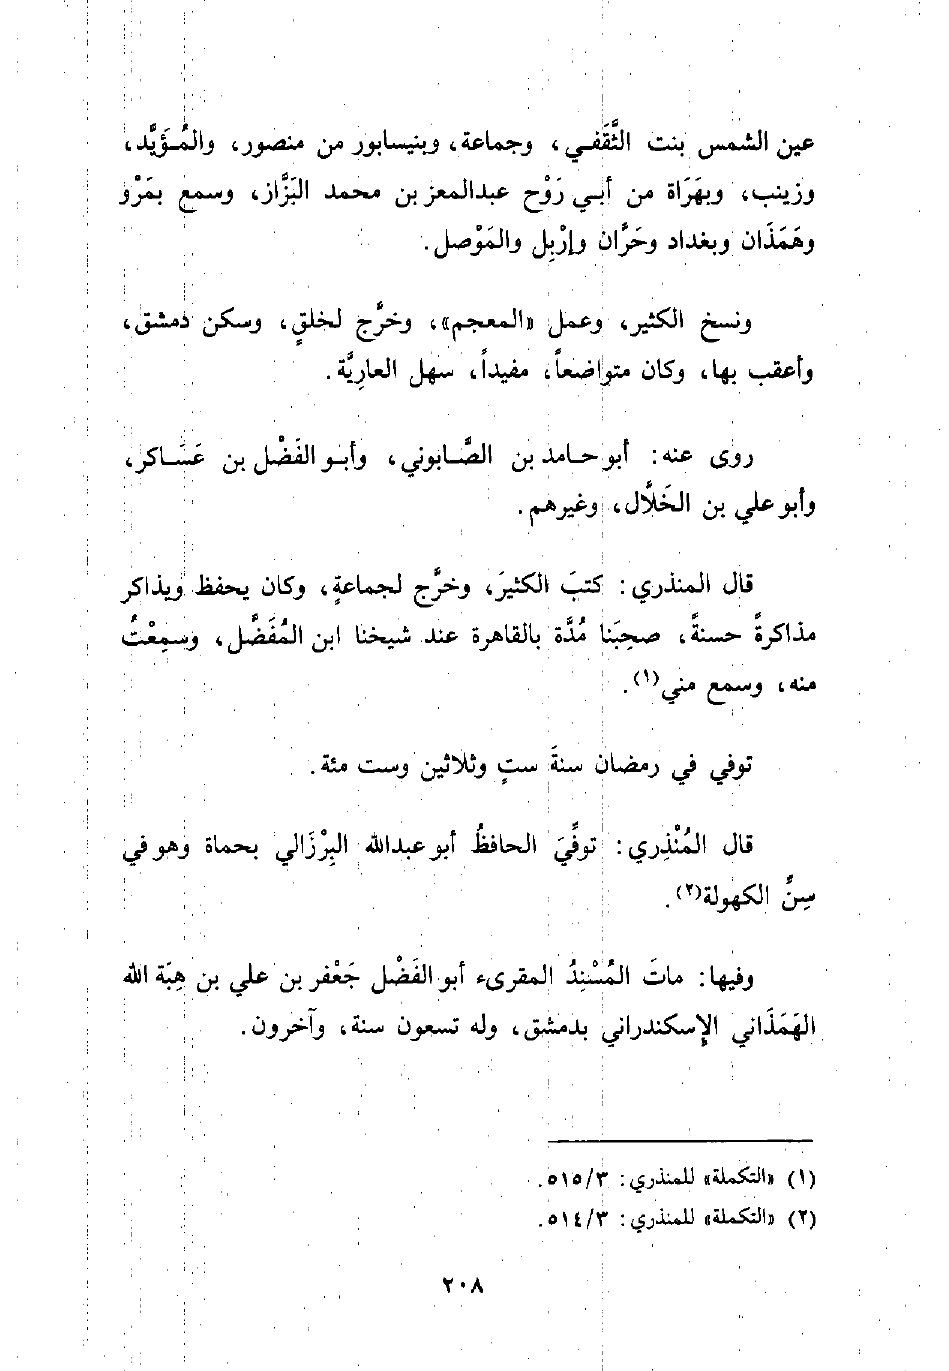 عين الشمس بنت الثَّقَفي، وجماعة، وبنيسابور من منصور، والمُؤيَّد،
وزينب، وبهَرَاة من أبي رَوْح عبدالمعز بن محمد البَزَّاز، وسمع بمَرْو
وهَمَذَان وبغداد وحَرَّان وإرْبِل والمَوْصل.
ونسخ الكثير، وعمل «المعجم»، وخرَّج لخلقٍ، وسكن دمشق،
وأعقب بها، وكان متواضعاً، مفيداً، سهل العاريَّة.
روى عنه: أبو حامد بن الصَّابوني، وأبو الفَضْل بن عَسَاكر،
وأبو علي بن الخَلاَّل، وغيرهم.
قال المنذري: كتبَ الكثيرَ، وخرَّج لجماعةٍ، وكان يحفظ ويذاكر
مذاكرةً حسنةً، صحِبَنا مُدَّة بالقاهرة عند شيخنا ابن المُفَضَّل، وسمِعْتُ
منه، وسمع مني(١).
توفي في رمضان سنةَ ستٍ وثلاثين وست مئة.
قال المُنْذِري: توفِّيَ الحافظُ أبو عبدالله البِرْزَالي بحماة وهو في
سِنِّ الكهولة(٢).
وفيها: ماتَ المُسْنِدُ المقرىء أبو الفَضْل جَعْفر بن علي بن هِبَة الله
الهَمَذَاني الإسكندراني بدمشق، وله تسعون سنة، وآخرون.
(١) «التكملة» للمنذري: ٥١٥/٣.
(٢) «التكملة» للمنذري: ٥١٤/٣.
٢٠٨